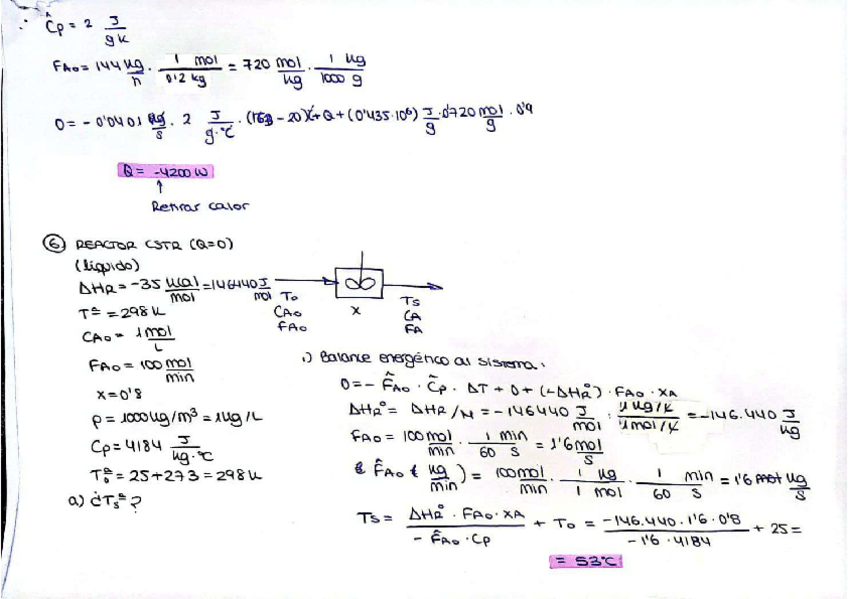 ∴ Ĉp = 2 J/gK
FAo = 144 kg/h · 1 mol/0'2 kg = 720 mol/kg · 1 kg/1000 g
0 = - 0'0401 kg/s · 2 J/g·°C · (163 - 20)K + Q + (0'435·10⁶) J/g · 0'720 mol/g · 0'9
Q = -4200 W
↑
Retirar calor
⑥ REACTOR CSTR (Q=0)
(líquido)
ΔHR = -35 kcal/mol = 146440 J/mol
Tº = 298 K
CAo = 1 mol/L
FAo = 100 mol/min
x = 0'8
ρ = 1000 kg/m³ = 1 kg/L
Cp = 4184 J/kg·°C
Tº = 25+273 = 298 K
a) ¿Tsº?
To
CAo
FAo
X
Ts
CA
FA
i) Balance energético al sistema.
0 = - F̂Ao · Ĉp · ΔT + 0 + (-ΔHRº) · FAo · XA
ΔHRº = ΔHR/M = -146440 J/mol : 1 kg/L / 1 mol/L = -146.440 J/kg
FAo = 100 mol/min · 1 min/60 s = 1'6 mol/s
F̂Ao (kg/min) = 100 mol/min · 1 kg/1 mol · 1 min/60 s = 1'6 kg/s
Ts = ΔHRº · FAo · XA / - F̂Ao · Cp + To = -146.440 · 1'6 · 0'8 / -1'6 · 4184 + 25 =
= 53°C